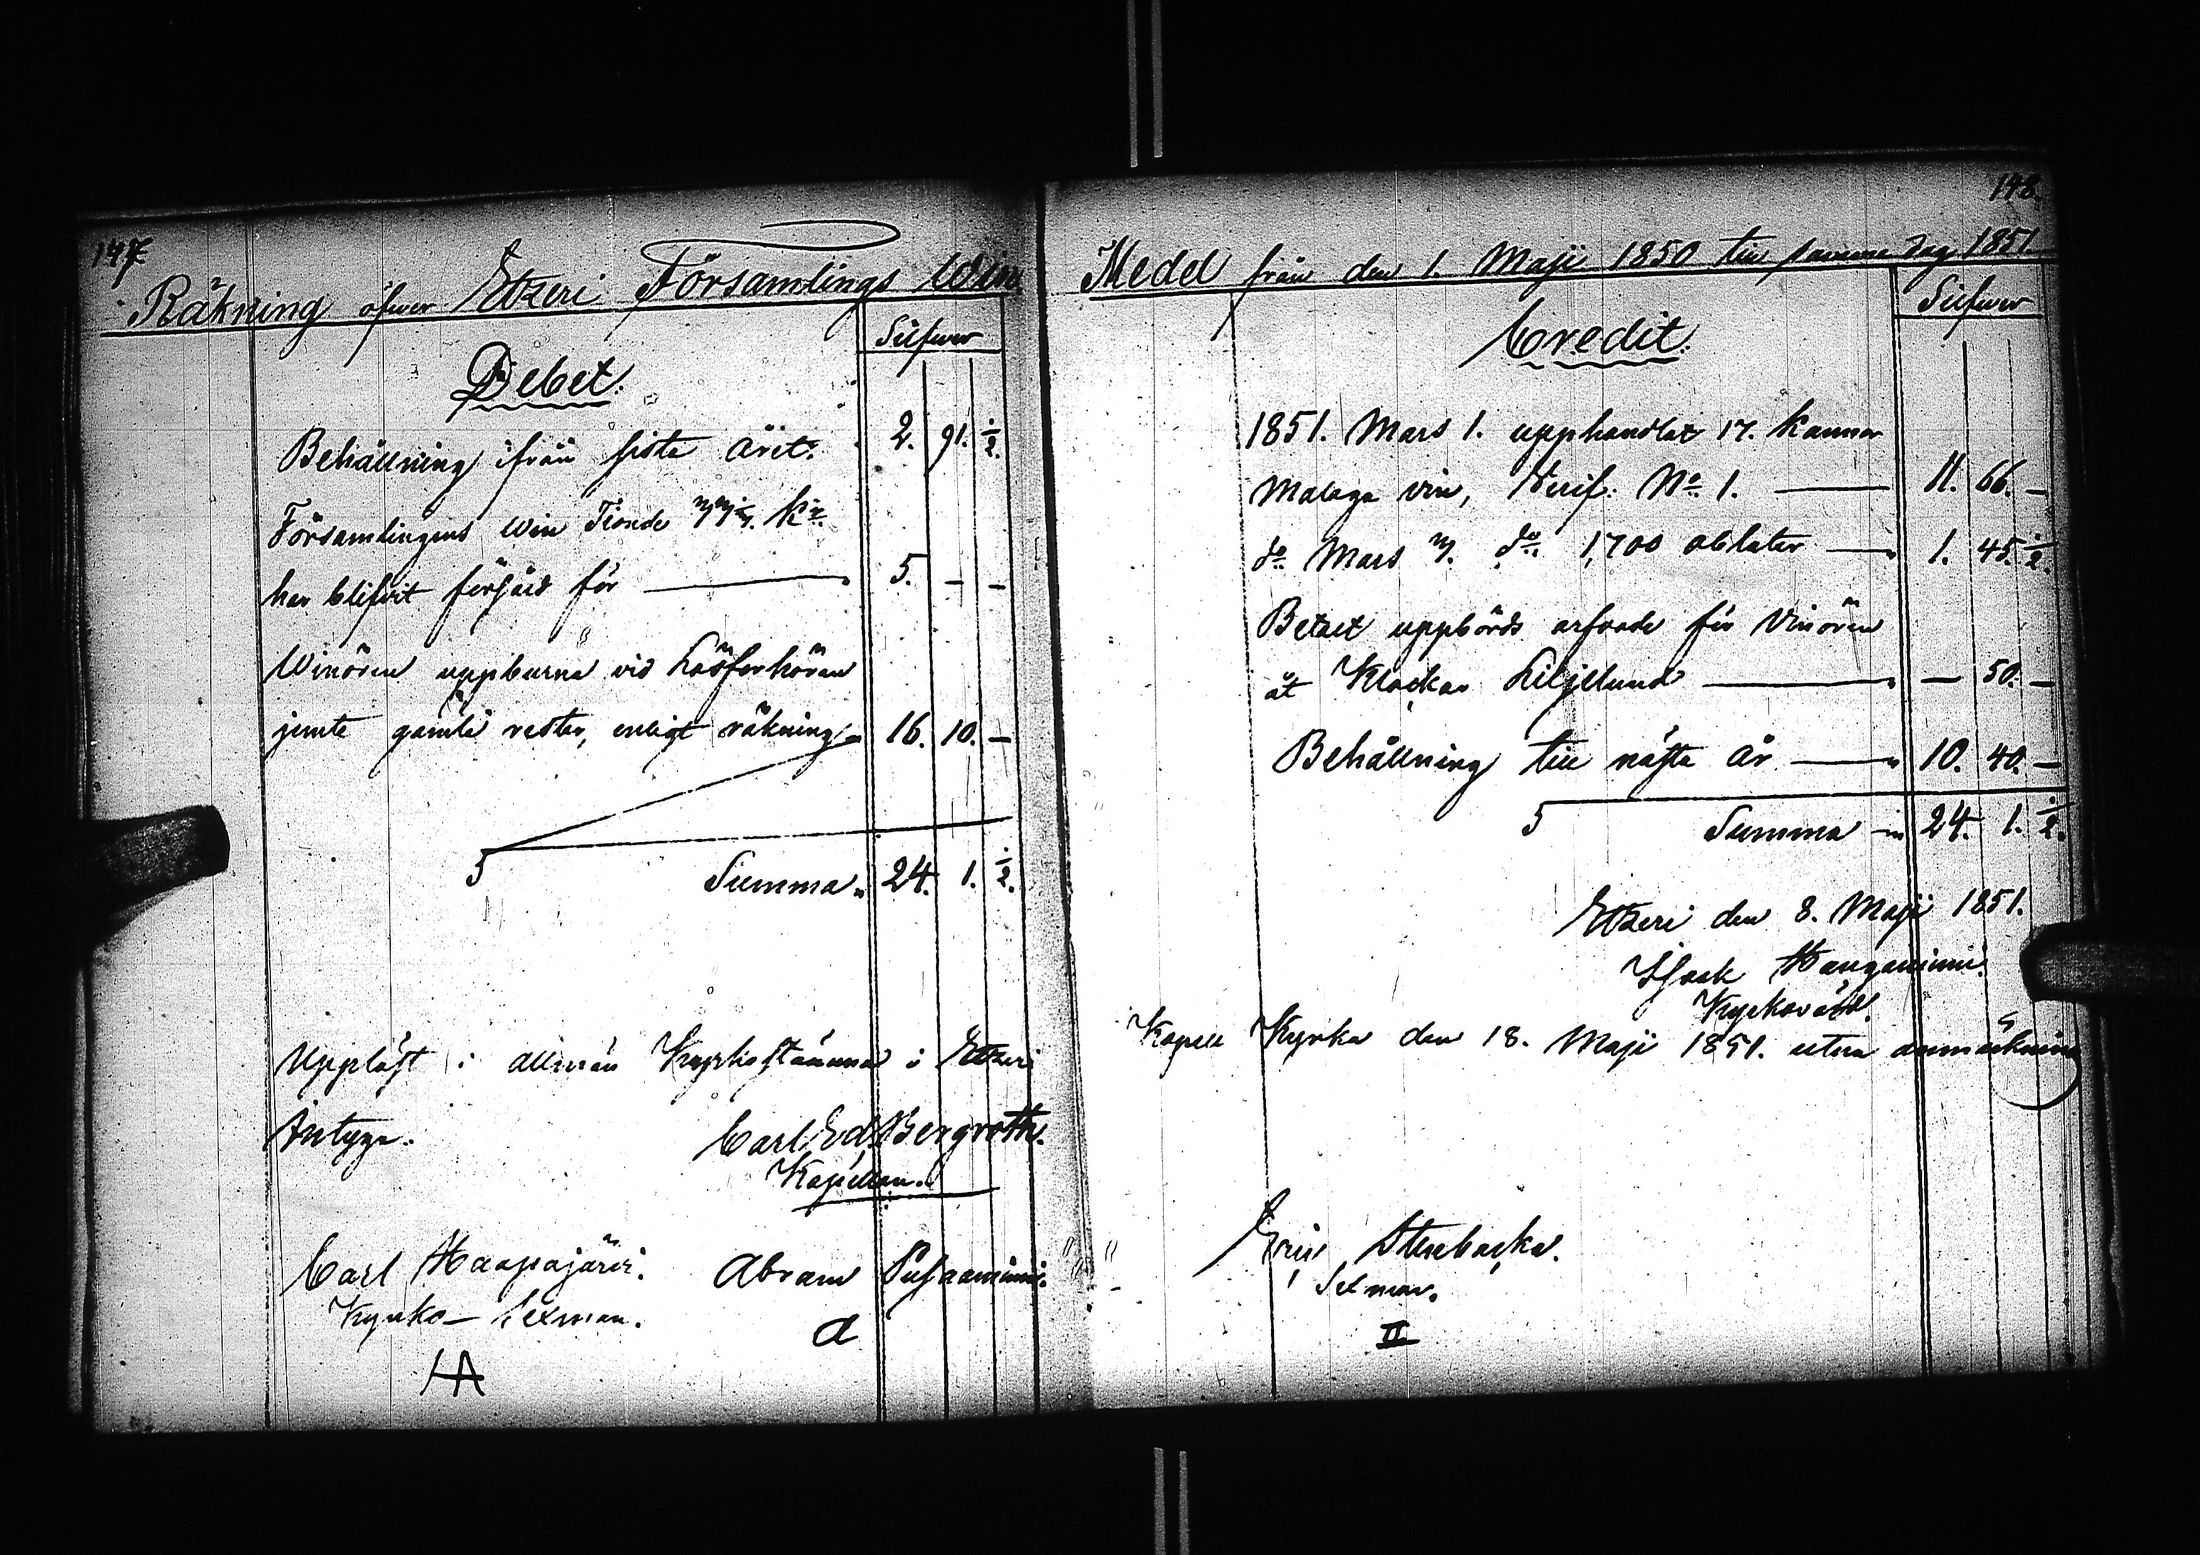 147
Räkning öfwer Etzeri Församlings Win
Silfwer
Debet.
Behållning ifrån sista året. 2. 91. 1/2.
Församlingens Win Tionde
har blifvit försåld för 5. – –
Winören uppburna vid Läsförhören
jemte gamla rester, enligt räkning 16. 10. –
Summa 24. 1. 1/2.
Uppläst i allmän Kyrkostämma i Etzeri
Intyga.
Carl Ed. Bergroth.
Kapellan.
Carl Haapajärvi. Abram
Kyrko-Sexman.
HA
148.
Medel från den 1. Maji 1850 till samma dag 1851
Silfwer
Credit.
1851. Mars 1. upphandlat 17. Kannor
Malaga vin, Verif: No 1. 11. 66. –
do Mars do 1,700 oblater 1. 45. 1/2.
Betalt uppbörds arfvode för Vinören
åt Klockar Liljelund – 50. –
Behållning till nästa år 10. 40. –
Summa 24. 1. 1/2.
Etzeri den 8. Maji 1851.
Isaak
Kyrkovärd.
Kapell Kyrka den 18. Maji 1851. utan anmärkning
Stenbacka.
Sexman.
II